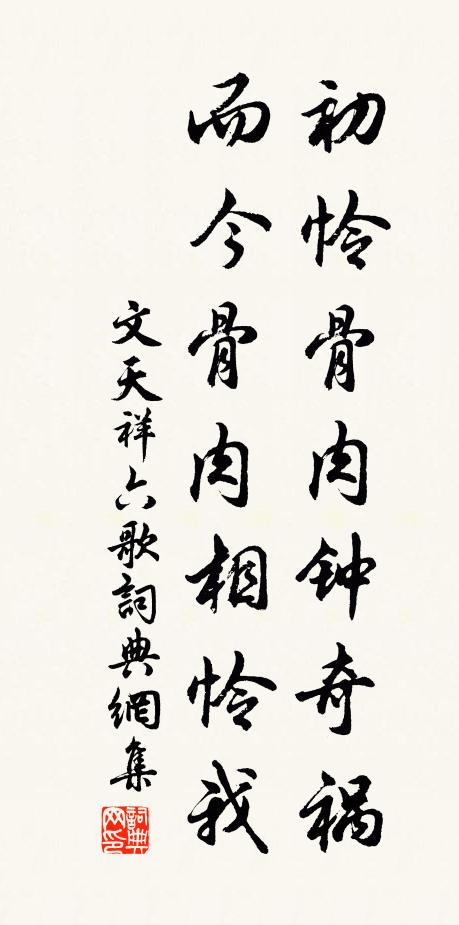 初怜骨肉钟奇祸
而今骨肉相怜我
文天祥六歌詞典網集
詞典网印